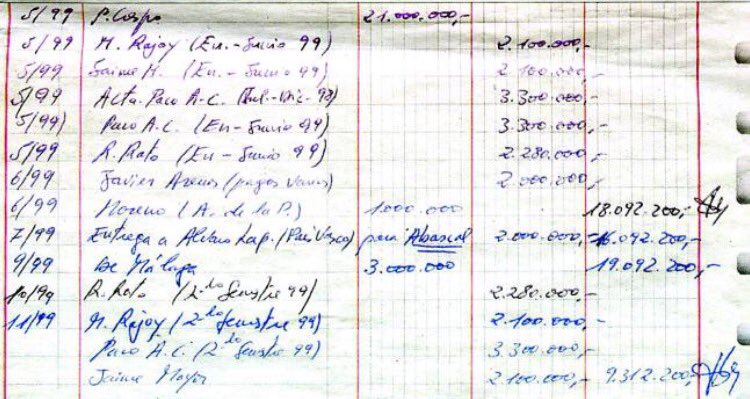 5/99 P. Crespo 21.000.000,-
5/99 M. Rajoy (En.- Junio 99) 2.100.000,-
5/99 Jaime M. (En. - Junio 99) 2.100.000,-
5/99 Acta. Paco A-C. (Jul.-Dic. 98) 3.300.000,-
5/99) Paco A.C. (En - Junio 99) 3.300.000,-
5/99 R. Rato (En - Junio 99) 2.280.000,-
6/99 Javier Arenas (pagos varios) 2.000.000,-
6/99 Moreno (A. de la P.) 1.000.000 18.092.200,-
7/99 Entrega a Alvaro Lap. (País Vasco) para Abascal 2.000.000,- 16.092.200,-
9/99 de Málaga 3.000.000 19.092.200,-
10/99 R. Rato (2º do Semstre 99) 2.280.000,-
11/99 M. Rajoy (2º do Semstre 99) 2.100.000,-
Paco A.C. (2º do Semstre 99) 3.300.000,-
Jaime Mayor 2.100.000,- 9.312.200,-